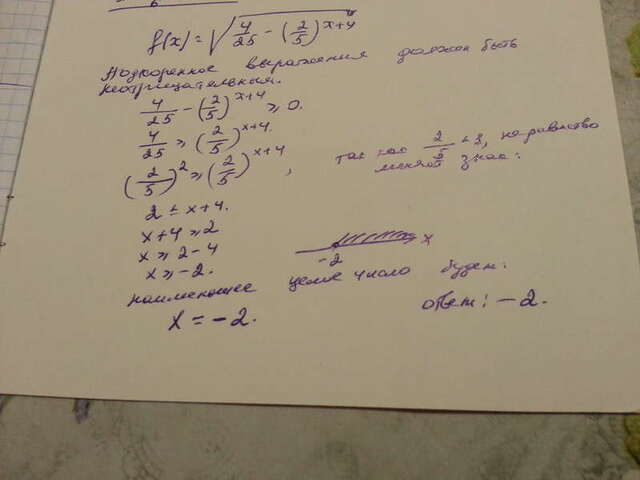 f(x) = √(4/25 - (2/5)^(x+4))
Подкоренное выражения должен быть
неотрицательным.
4/25 - (2/5)^(x+4) ≥ 0.
4/25 ≥ (2/5)^(x+4).
(2/5)^2 ≥ (2/5)^(x+4), так как 2/5 < 1, неравенство
меняет знак:
2 ≤ x+4.
x+4 ≥ 2
x ≥ 2-4
x ≥ -2.
-2 x
наименьшее целое число будет:
x = -2. ответ: -2.